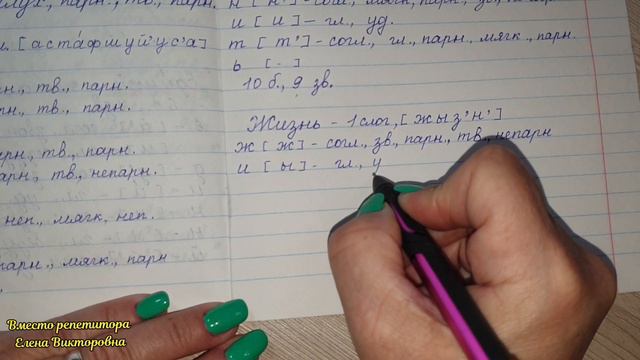 парн., тв., парн.
[астафшуй'у'с'а]
тв., парн.
тв., парн.
тв., парн.
парн., тв., непарн.
неп., мягк, неп.
парн., мягк., парн
и [и] – гл., уд.
т [т'] – согл., гл., парн., мягк., парн.
ь [-]
10 б., 9 зв.
Жизнь – 1 слог, [жыз'н']
ж [ж] – согл., зв., парн., тв., непарн
и [ы] – гл., у
Вместо репетитора
Елена Викторовна